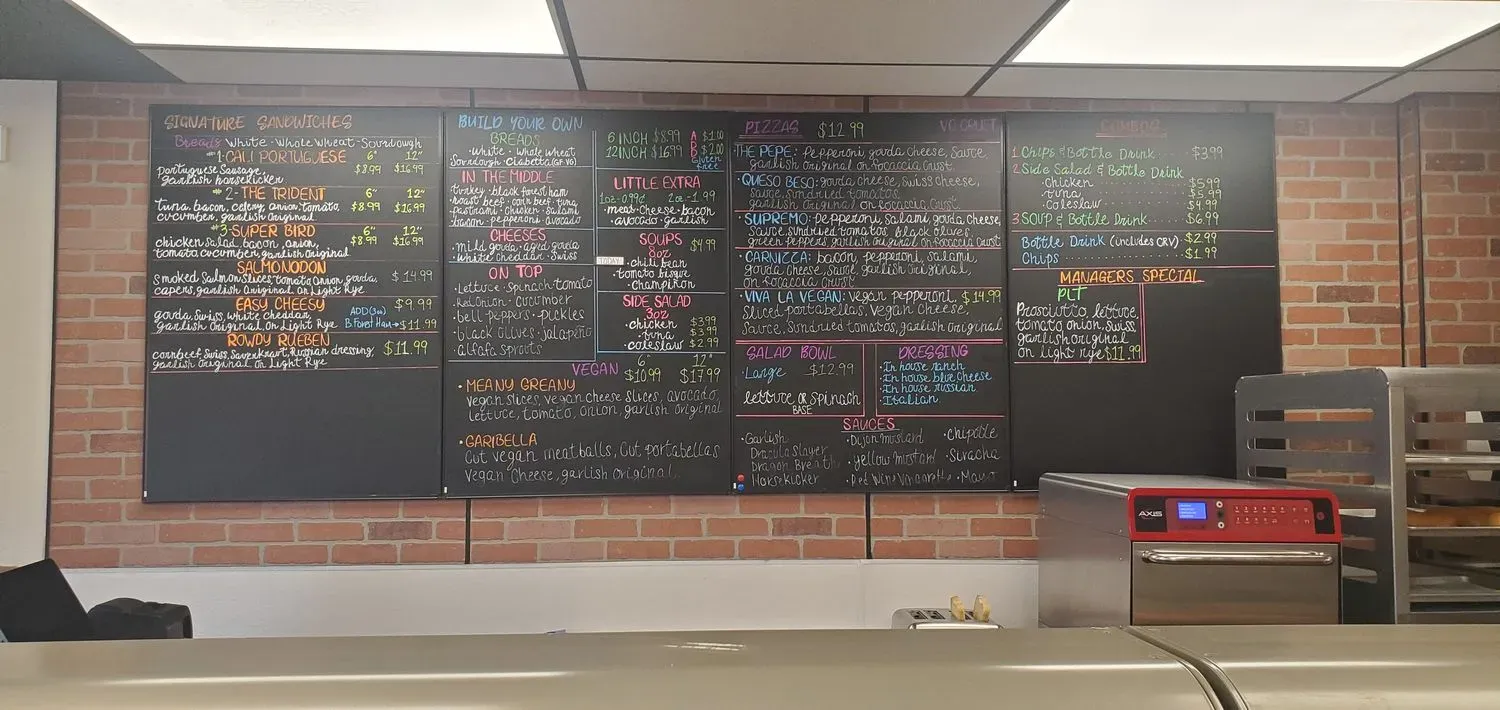 SIGNATURE SANDWICHES
Breads White · Whole Wheat · Sourdough
#1· CALI PORTUGUESE 6" 12"
Portuguese Sausage, $8.99 $16.99
garlish horsekicker
#2· THE TRIDENT 6" 12"
tuna, bacon, celery, onion, tomato, $8.99 $16.99
cucumber, garlish Original
#3·SUPER BIRD 6" 12"
chicken salad, bacon, onion, $8.99 $16.99
tomato, cucumber, garlish Original
SALMONODON
smoked Salmon slices, tomato, onion, gouda, $14.99
capers, garlish Original on Light Rye
EASY CHEESY $9.99
gouda, swiss, white cheddar, ADD (3oz)
garlish Original on Light Rye B.Forest Ham→$11.99
ROWDY RUEBEN
cornbeef, Swiss, Sauerkraut, Russian dressing, $11.99
garlish Original on Light Rye
BUILD YOUR OWN
BREADS
·White · Whole Wheat
Sourdough · Ciabatta(GF VG)
IN THE MIDDLE
turkey · black forest ham
roast beef · corn beef · tuna
pastrami · chicken · salami
bacon · pepperoni · avocado
CHEESES
·mild gouda · aged gouda
·white cheddar · Swiss
ON TOP
·Lettuce · Spinach · tomato
·Red Onion · Cucumber
·bell peppers · pickles
·black olives · jalapeño
·alfafa sprouts
6 INCH $8.99
12INCH $16.99
ADD $1.00
$2.00
Gluten
free
LITTLE EXTRA
1oz-0.99¢ 2oz-1.99
·meat·cheese·bacon
·avocado·garlish
SOUPS $4.99
8oz
TODAY
·chili bean
·tomato bisque
·champiñon
SIDE SALAD
3oz
·chicken $3.99
·tuna $3.99
·coleslaw $2.99
VEGAN 6" 12"
$10.99 $17.99
·MEANY GREANY
vegan slices, vegan cheese slices, avocado,
lettuce, tomato, onion, garlish Original
·GARIBELLA
Cut vegan meatballs, Cut portabellas
vegan Cheese, garlish Original
PIZZAS $12.99 VG CRUST
·THE PEPE: Pepperoni, gouda cheese, Sauce,
garlish original on focaccia Crust
·QUESO BESO: gouda cheese, Swiss cheese,
Sauce, sundried tomatos,
garlish original on focaccia Crust
·SUPREMO: Pepperoni, salami, gouda cheese,
Sauce, sundried tomatos, black olives,
green peppers, garlish original on focaccia Crust
·CARNIZZA: bacon, pepperoni, salami,
gouda cheese, Sauce, garlish Original,
on focaccia Crust
·VIVA LA VEGAN: Vegan pepperoni, $14.99
Sliced portabellas, Vegan Cheese,
Sauce, Sundried tomatos, garlish original
SALAD BOWL
·Large $12.99
lettuce OR Spinach
BASE
DRESSING
·In house ranch
·In house blue cheese
·In house russian
·Italian
SAUCES
·Garlish
Dracula Slayer
Dragon Breath
Horsekicker
·Dijon mustard
·yellow mustard
·Red Wine Vinaigrette
·Chipotle
·Siracha
·Mayo
COMBOS
1 Chips & Bottle Drink $3.99
2 Side Salad & Bottle Drink
·Chicken $5.99
·tuna $5.99
·Coleslaw $4.99
3 SOUP & Bottle Drink $6.99
Bottle Drink (includes CRV) $2.99
Chips $1.99
MANAGERS SPECIAL
PLT
Prosciutto, lettuce,
tomato, onion, swiss
garlish original
on light rye $11.99
AXIS